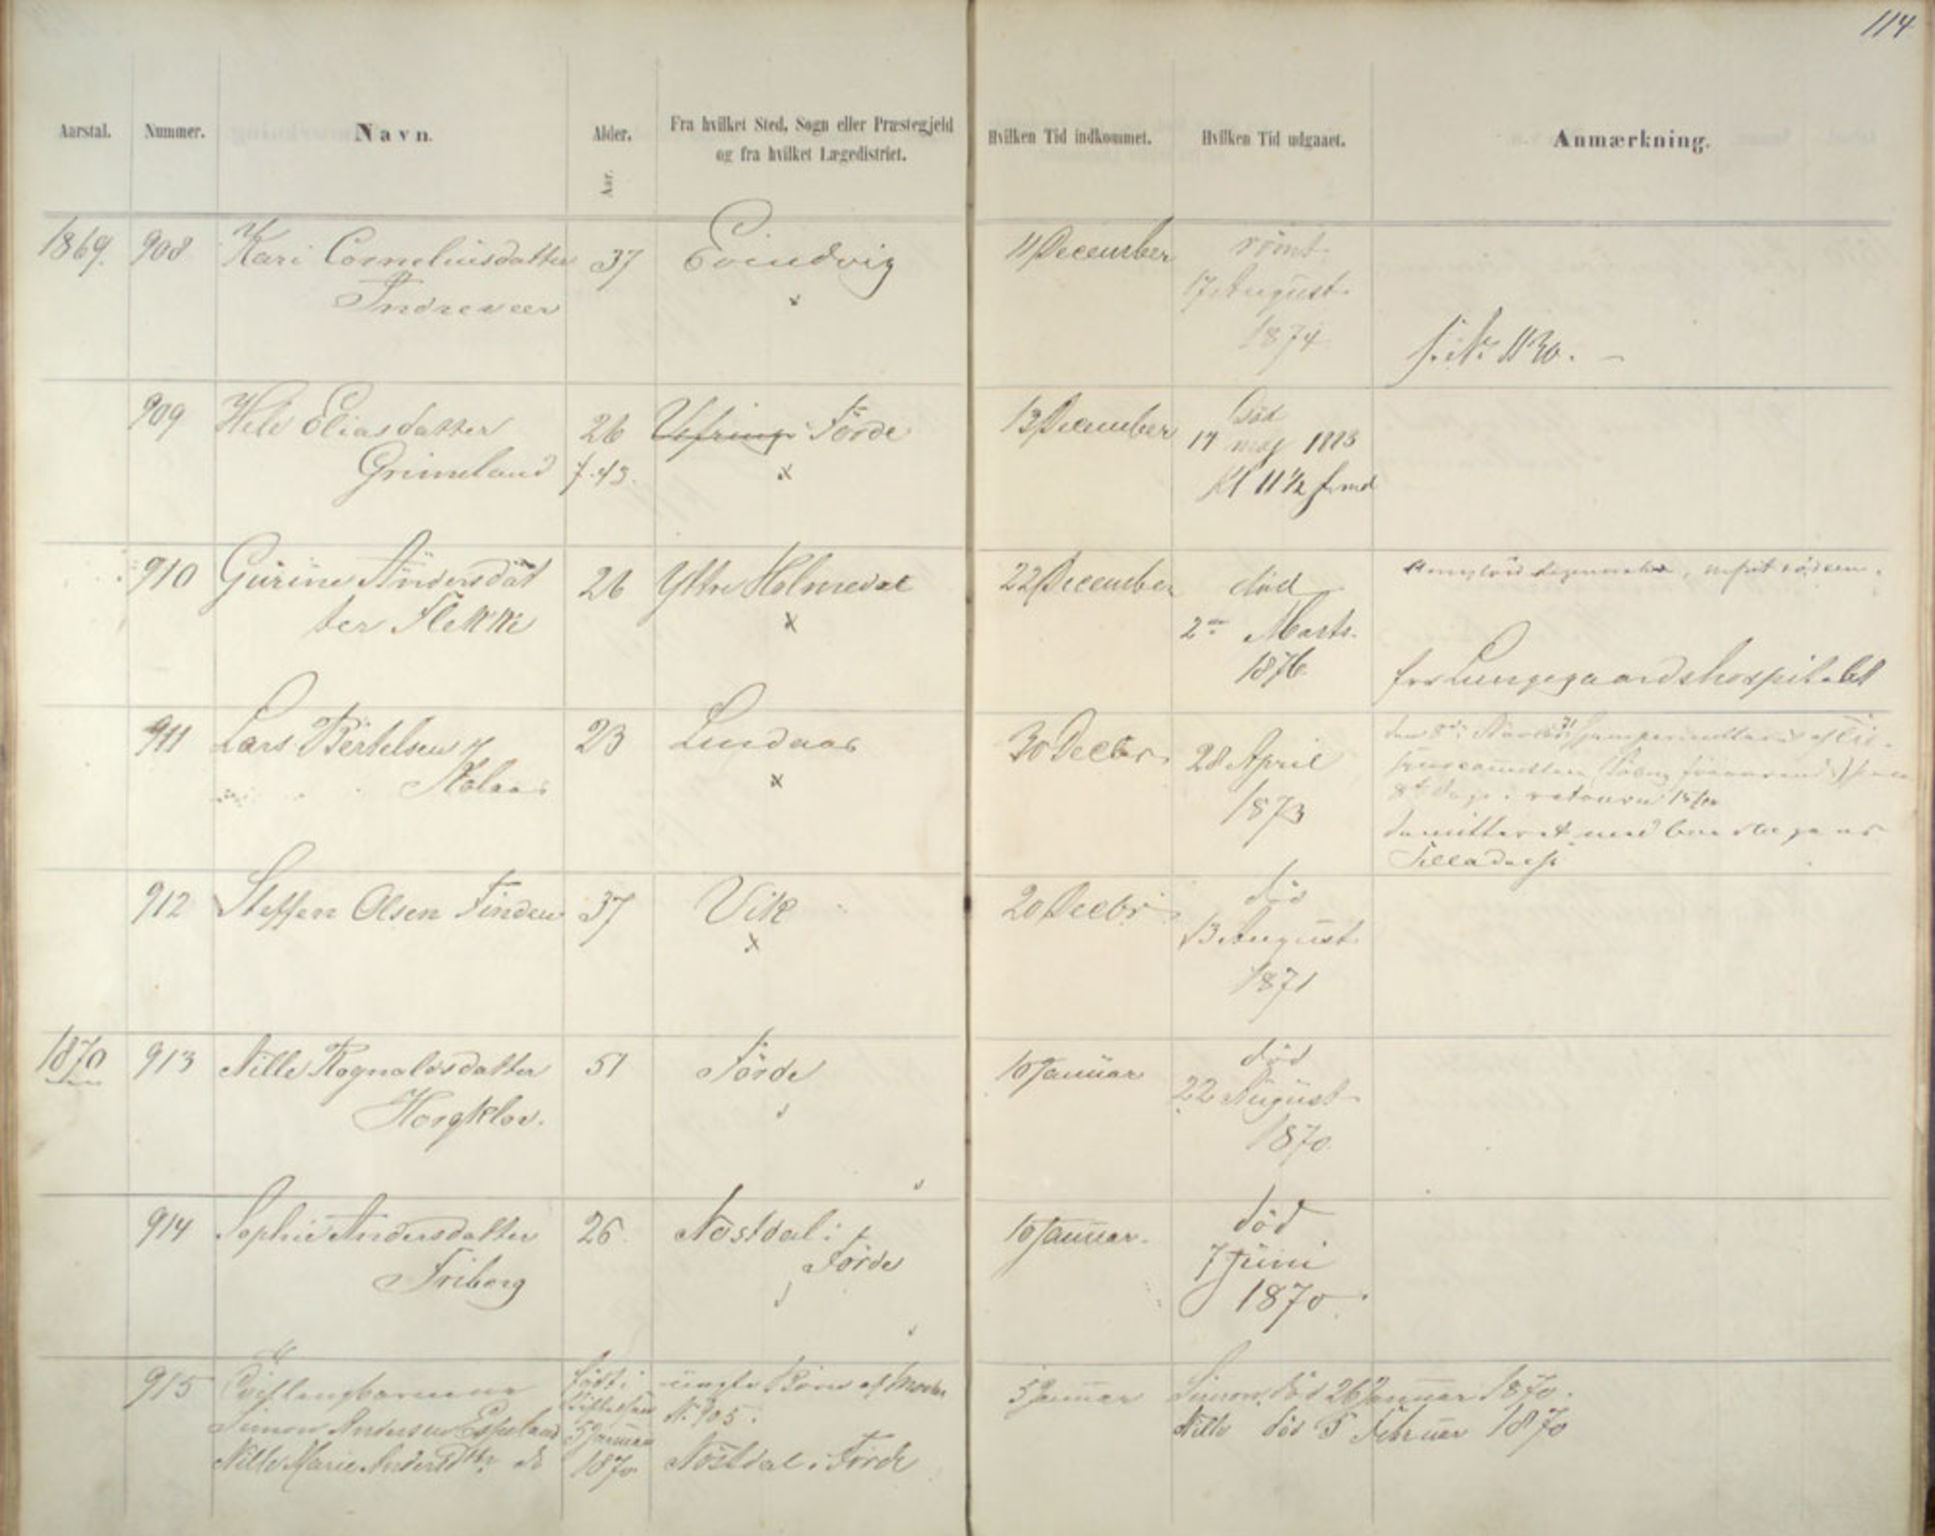 114
Aarstal. Nummer. Navn. Alder. Fra hvilket Sted, Sogn eller Præstegjeld
og fra hvilket Lægedistrict.
Aar.
Hvilken Tid indkommet. Hvilken Tid udgaaet. Anmærkning.
1869. 908 Kari Corneliusdatter 37 Evindvig 11 December rømt
Indrevær 17 August
1874
f. N: 1130. –
909 Eliasdatter 26 Førde 13 December Død
Grimeland f. 43. 14 maj 1883
Kl 11 1/2 fmd
910 Gurine Andersdat 26 Yttre Holmedal 22 December død
ter Flekke 2den Marts.
1876.
fra Lungegaardshospitalet
911 Lars Bertelsen 23 Lindaas 30 Decbr. 28 April
1873
dimitteret med
Tilladelse
912 Steffen Olsen Finden 37 Vik 20 Decbr. død
13 August
1871
1870 913 Nille Rognaldsdatter 51 Førde 10 Januar død
Horgklov. 22 August
1870.
914 Sophie Andersdatter 26. Nøstdal i 10 Januar. død
Friborg Førde 7 Juni
1870.
915 Tvillingbarnene født i Børn af Moder 5 Januar Simon, død 26 Januar 1870.
Simon Andersen Espeland Stiftelsen N. 905. Nille død 5 Februar 1870
5 Januar
Nille Marie Andersdtr. do 1870 Nøstdal i Førde